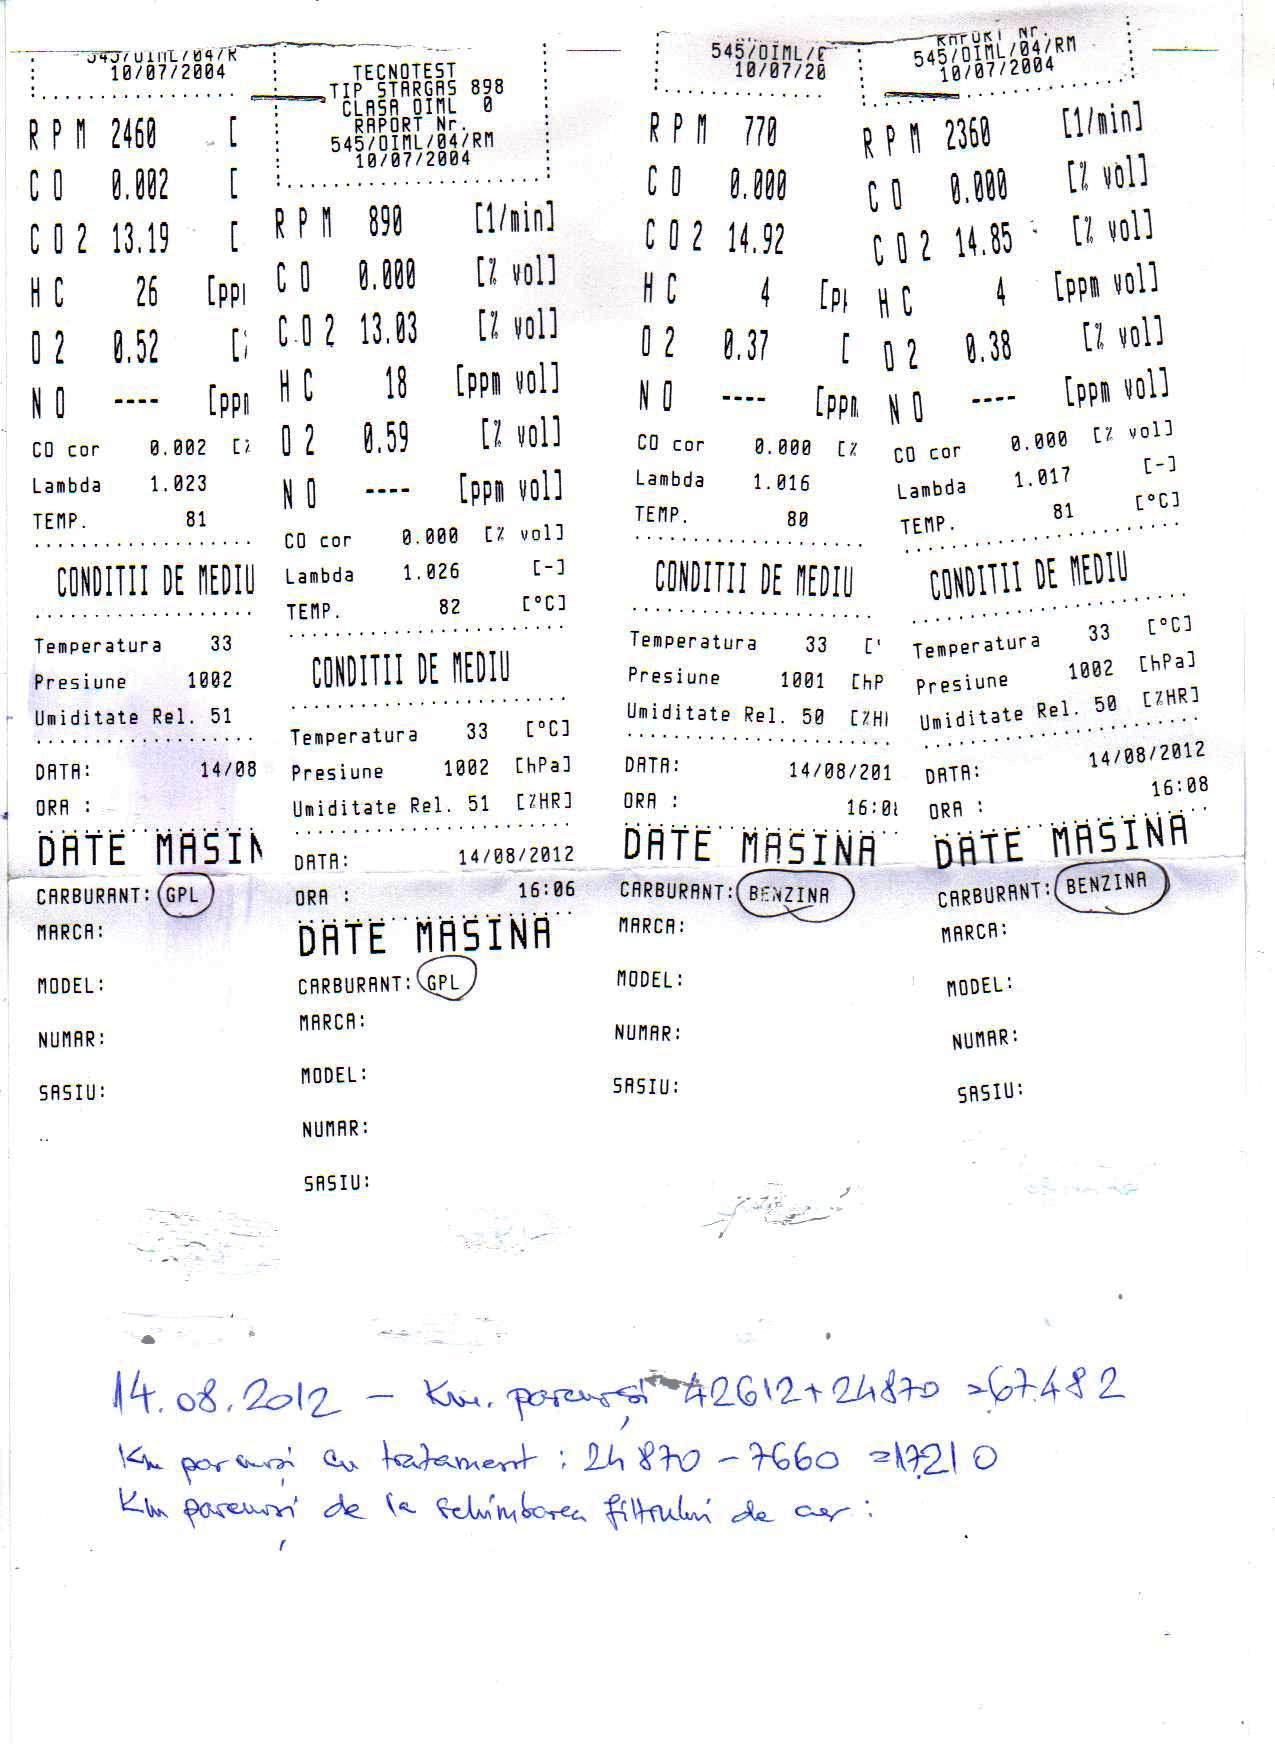 545/OIML/04/R
10/07/2004
RPM 2460 [
CO 0.002 [
CO2 13.19 [
HC 26 [pp
O2 0.52 [
NO ---- [pp
CO cor 0.002 [%
Lambda 1.023
TEMP. 81
CONDITII DE MEDIU
Temperatura 33
Presiune 1002
Umiditate Rel. 51
DATA: 14/08
ORA :
DATE MASIN
CARBURANT: GPL
MARCA:
MODEL:
NUMAR:
SASIU:
TECNOTEST
TIP STARGAS 898
CLASA OIML 0
RAPORT Nr.
545/OIML/04/RM
10/07/2004
RPM 890 [1/min]
CO 0.000 [% vol]
CO2 13.03 [% vol]
HC 18 [ppm vol]
O2 0.59 [% vol]
NO ---- [ppm vol]
CO cor 0.000 [% vol]
Lambda 1.026 [-]
TEMP. 82 [°C]
CONDITII DE MEDIU
Temperatura 33 [°C]
Presiune 1002 [hPa]
Umiditate Rel. 51 [%HR]
DATA: 14/08/2012
ORA : 16:06
DATE MASINA
CARBURANT: GPL
MARCA:
MODEL:
NUMAR:
SASIU:
545/OIML/
10/07/20
RPM 770
CO 0.000
CO2 14.92
HC 4 [p
O2 0.37 [
NO ---- [ppm
CO cor 0.000 [%
Lambda 1.016
TEMP. 80
CONDITII DE MEDIU
Temperatura 33 [°
Presiune 1001 [hP
Umiditate Rel. 50 [%H
DATA: 14/08/201
ORA : 16:0
DATE MASINA
CARBURANT: BENZINA
MARCA:
MODEL:
NUMAR:
SASIU:
RAPORT Nr.
545/OIML/04/RM
10/07/2004
RPM 2360 [1/min]
CO 0.000 [% vol]
CO2 14.85 [% vol]
HC 4 [ppm vol]
O2 0.38 [% vol]
NO ---- [ppm vol]
CO cor 0.000 [% vol]
Lambda 1.017 [-]
TEMP. 81 [°C]
CONDITII DE MEDIU
Temperatura 33 [°C]
Presiune 1002 [hPa]
Umiditate Rel. 50 [%HR]
DATA: 14/08/2012
ORA : 16:08
DATE MASINA
CARBURANT: BENZINA
MARCA:
MODEL:
NUMAR:
SASIU:
14.08.2012 – Km. parcurși 42612+24870 =67.482
Km parcurși cu tratament : 24870 – 7660 =17210
Km parcurși de la schimbarea filtrului de aer :